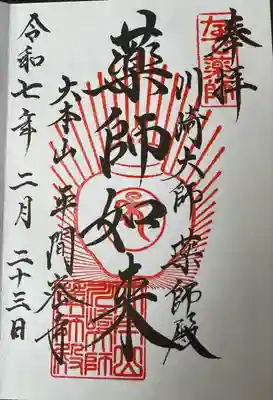 奉拝
川崎大師 薬師殿
薬師如来
大本山 平間寺
令和七年 二月 二十三日